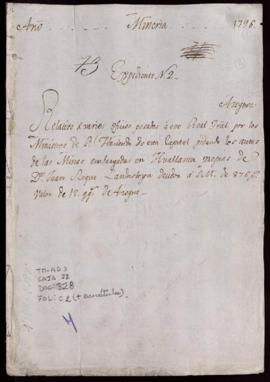 Año Mineria 1796
Expediente N.2
Azogues
Relativo á varios oficios pasados á este Real Tral por los
Ministros de Rl Hacienda de esta Capital pidiendo los autos
de las Minas embargadas en Huallanca propias de
Dn Juan Roque deudor á S.M. de 876 p
valor de 12 qqs de Azogue
TM-AD 3
CAJA 22
DOC 828
FOL: (+ carátula)